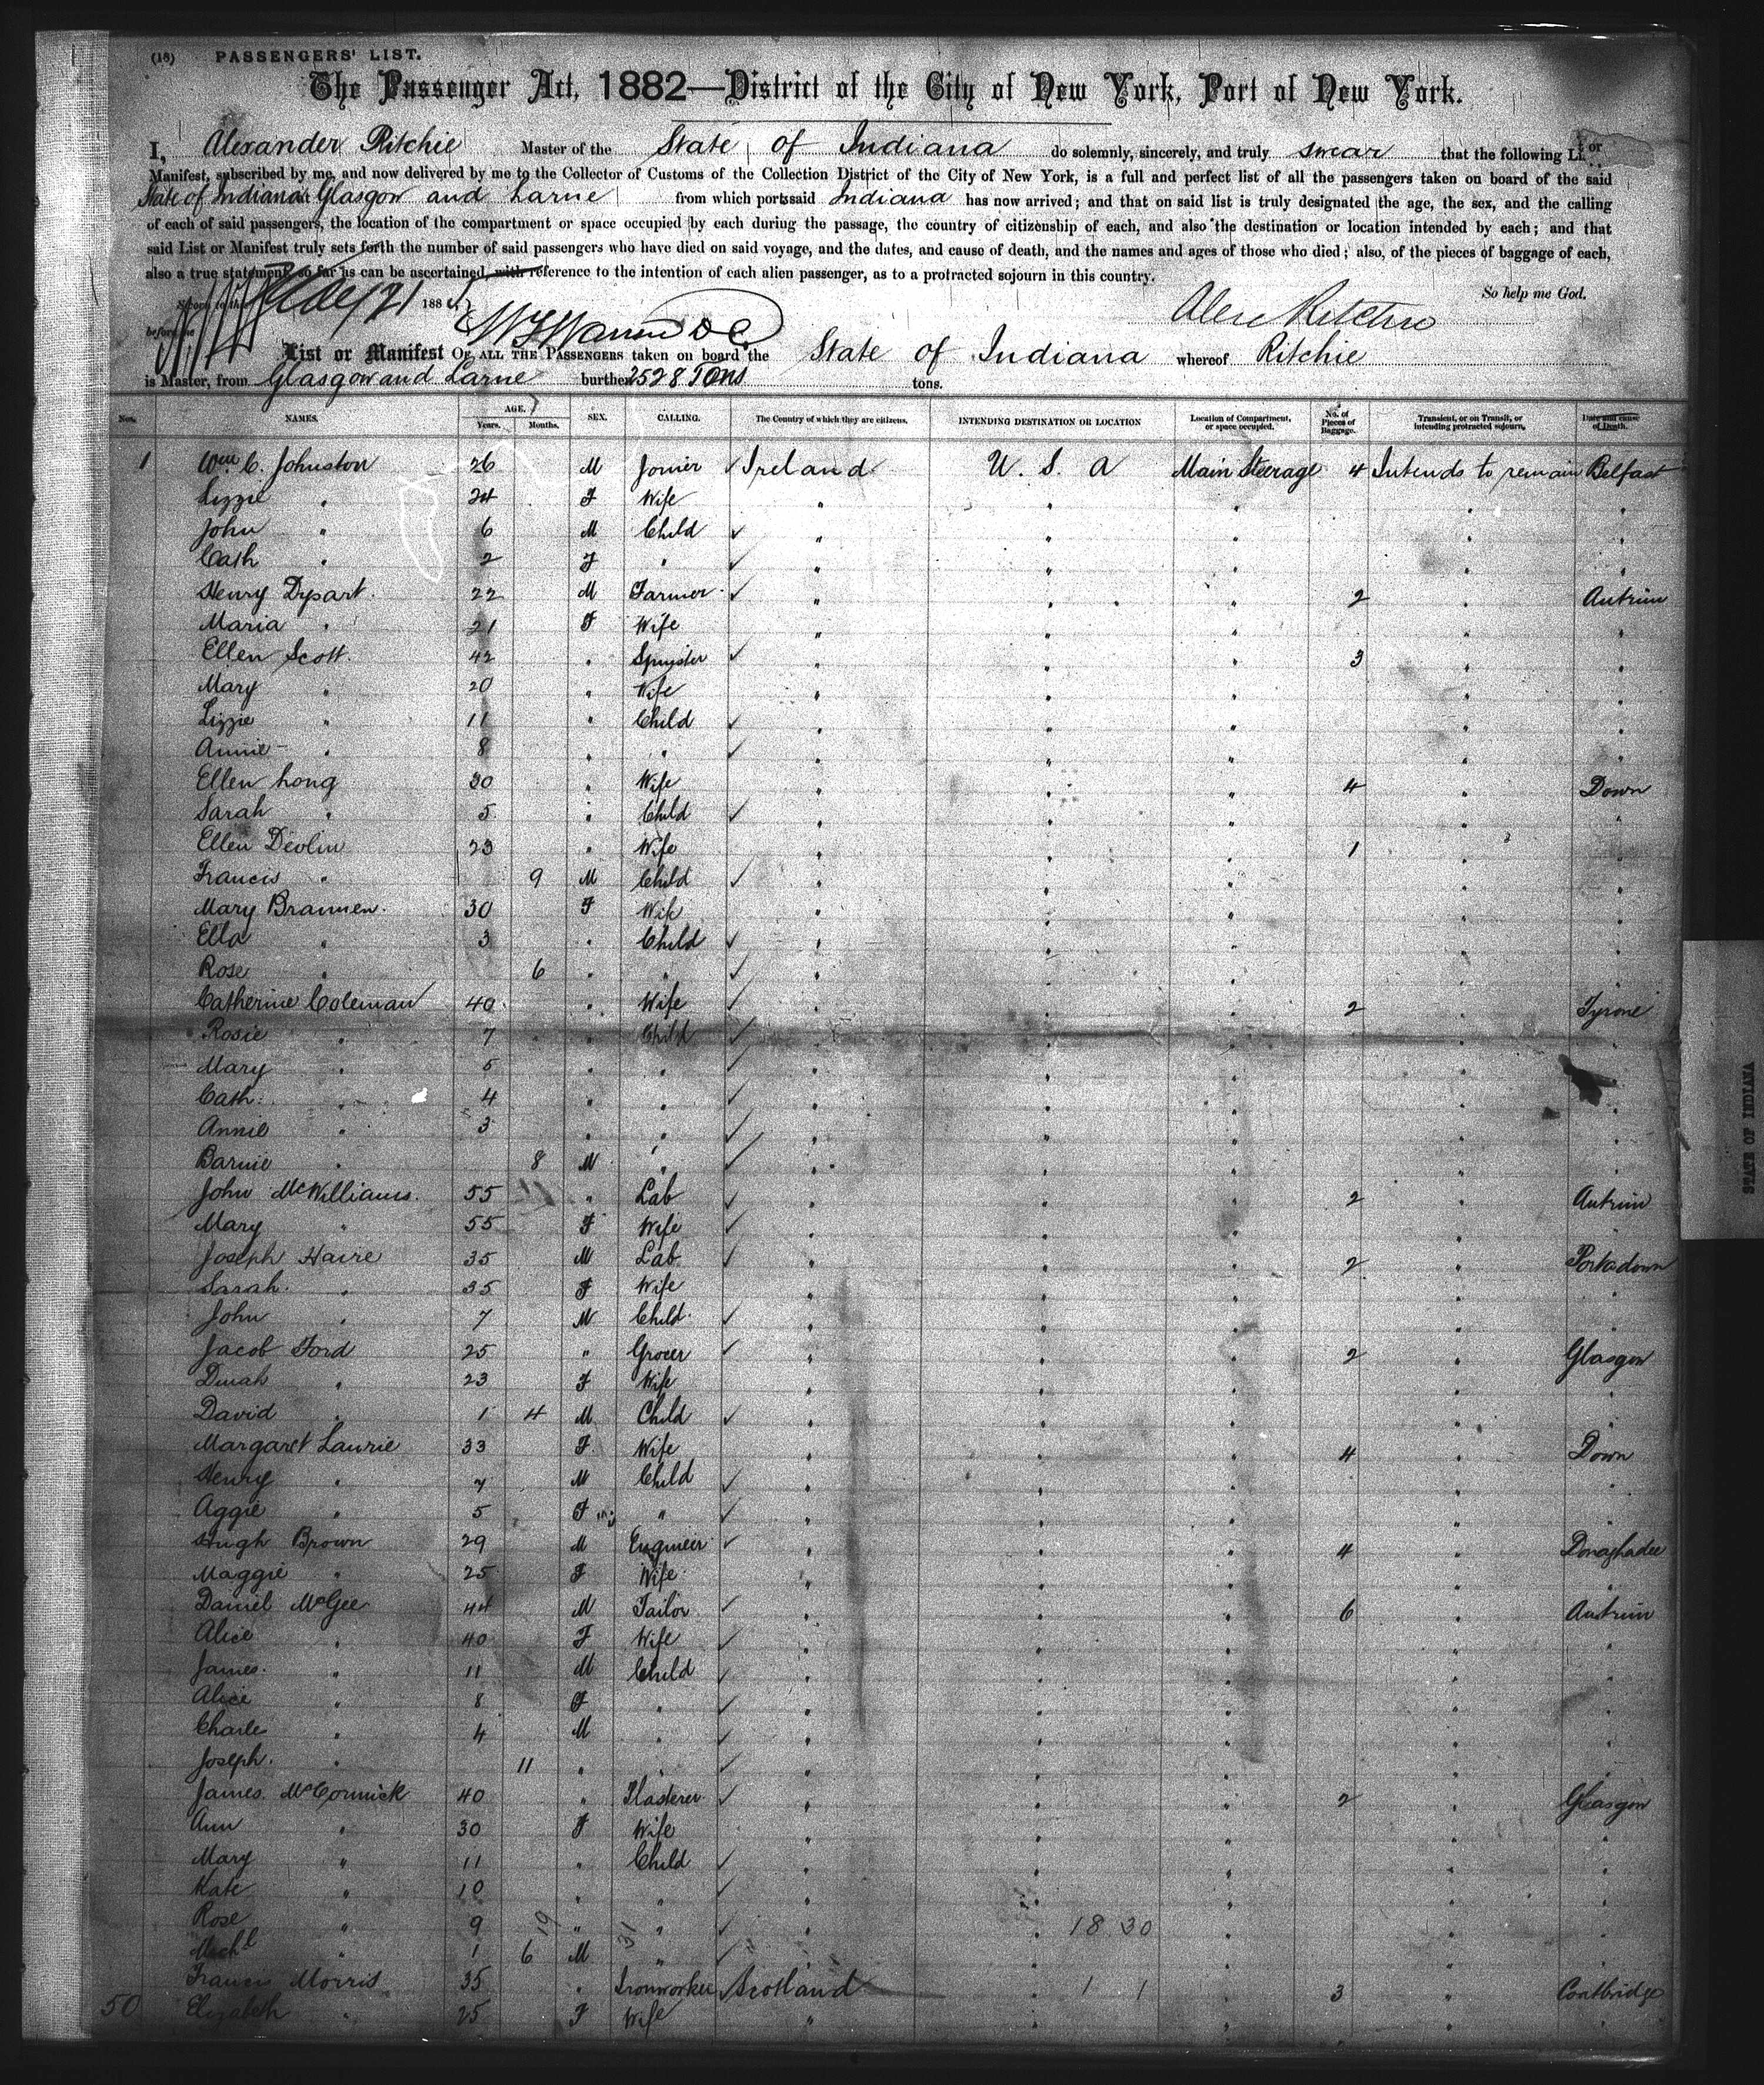 (18) PASSENGERS' LIST.
The Passenger Act, 1882—District of the City of New York, Port of New York.
I, Alexander Ritchie Master of the State of Indiana do solemnly, sincerely, and truly swear that the following List or
Manifest, subscribed by me, and now delivered by me to the Collector of Customs of the Collection District of the City of New York, is a full and perfect list of all the passengers taken on board of the said
State of Indiana Glasgow and Larne from which port said Indiana has now arrived; and that on said list is truly designated the age, the sex, and the calling
of each of said passengers, the location of the compartment or space occupied by each during the passage, the country of citizenship of each, and also the destination or location intended by each; and that
said List or Manifest truly sets forth the number of said passengers who have died on said voyage, and the dates, and cause of death, and the names and ages of those who died; also, of the pieces of baggage of each,
also a true statement, so far as can be ascertained, with reference to the intention of each alien passenger, as to a protracted sojourn in this country.
So help me God.
Sworn to this 21 188
before me
Alex Ritchie
List or Manifest OF ALL THE PASSENGERS taken on board the State of Indiana whereof Ritchie
is Master, from Glasgow and Larne burthen 2528 Tons tons.
Nos. NAMES. AGE. Years. Months. SEX. CALLING. The Country of which they are citizens. INTENDING DESTINATION OR LOCATION Location of Compartment, or space occupied. No. of Pieces of Baggage. Transient, or on Transit, or intending protracted sojourn. Date and cause of Death.
1 Wm C. Johnston 26 M Joiner Ireland U. S. A Main Steerage 4 Intends to remain Belfast
Lizzie " 24 F Wife " " " " "
John " 6 M Child " " " " "
Cath " 2 F " " " " " "
Henry Dysart. 22 M Farmer " " " 2 " Antrim
Maria " 21 F Wife " " " " "
Ellen Scott. 42 " Spinster " " " 3 " "
Mary " 20 " Wife " " " " "
Lizzie " 11 " Child " " " " "
Annie " 8 " " " " " " "
Ellen Long 30 " Wife " " " 4 " Down
Sarah " 5 " Child " " " " "
Ellen Devlin 23 " Wife " " " 1 " "
Francis " 9 M Child " " " " "
Mary Brannen. 30 F Wife " " " " "
Ella " 3 " Child " " " " "
Rose " 6 " " " " " " "
Catherine Coleman 40 " Wife " " " 2 " Tyrone
Rosie " 7 " Child " " " " "
Mary " 5 " " " " " " "
Cath: " 4 " " " " " " "
Annie " 3 " " " " " " "
Barnie " 8 M " " " " " "
John McWilliams. 55 " Lab " " " 2 " Antrim
Mary " 55 F Wife " " " " "
Joseph Haire 35 M Lab " " " 2 " Portadown
Sarah. " 35 F Wife " " " " "
John " 7 M Child " " " " "
Jacob Ford 25 " Grocer " " " 2 " Glasgow
Dinah " 23 F Wife " " " " "
David " 1 4 M Child " " " " "
Margaret Laurie 33 F. Wife " " " 4 " Down
Henry " 7 M Child " " " " "
Aggie " 5 F " " " " " "
Hugh Brown 29 M Engineer " " " 4 " Donaghadee
Maggie " 25 F Wife " " " " "
Daniel McGee 44 M Tailor " " " 6 " Antrim
Alice " 40 F Wife " " " " "
James. " 11 M Child " " " " "
Alice " 8 F " " " " " "
Charles " 4 M " " " " " "
Joseph. " 11 " " " " " " "
James. McCormick 40 " Plasterer " " " 2 " Glasgow
Ann " 30 F Wife " " " " "
Mary " 11 " Child " " " " "
Kate " 10 " " " " " " "
Rose " 9 19 " 31 " " " 18 30 " " "
Michl " 1 6 M " " " " " "
Francis Morris 35 " Ironworker Scotland " 1 1 " 3 " Coatbridge
50 Elizabeth " 25 F Wife " " " " "
STATE OF INDIANA